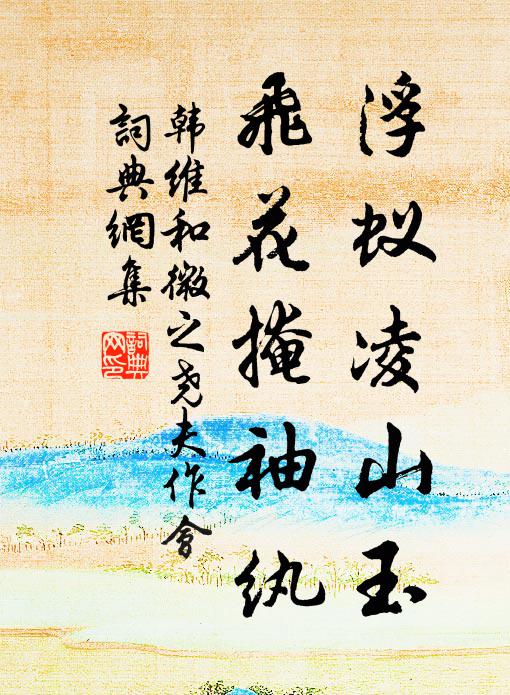 浮蚁凌山玉
飛花掩袖纨
韩維和微之尧夫作會
詞典網集
詞典
网印